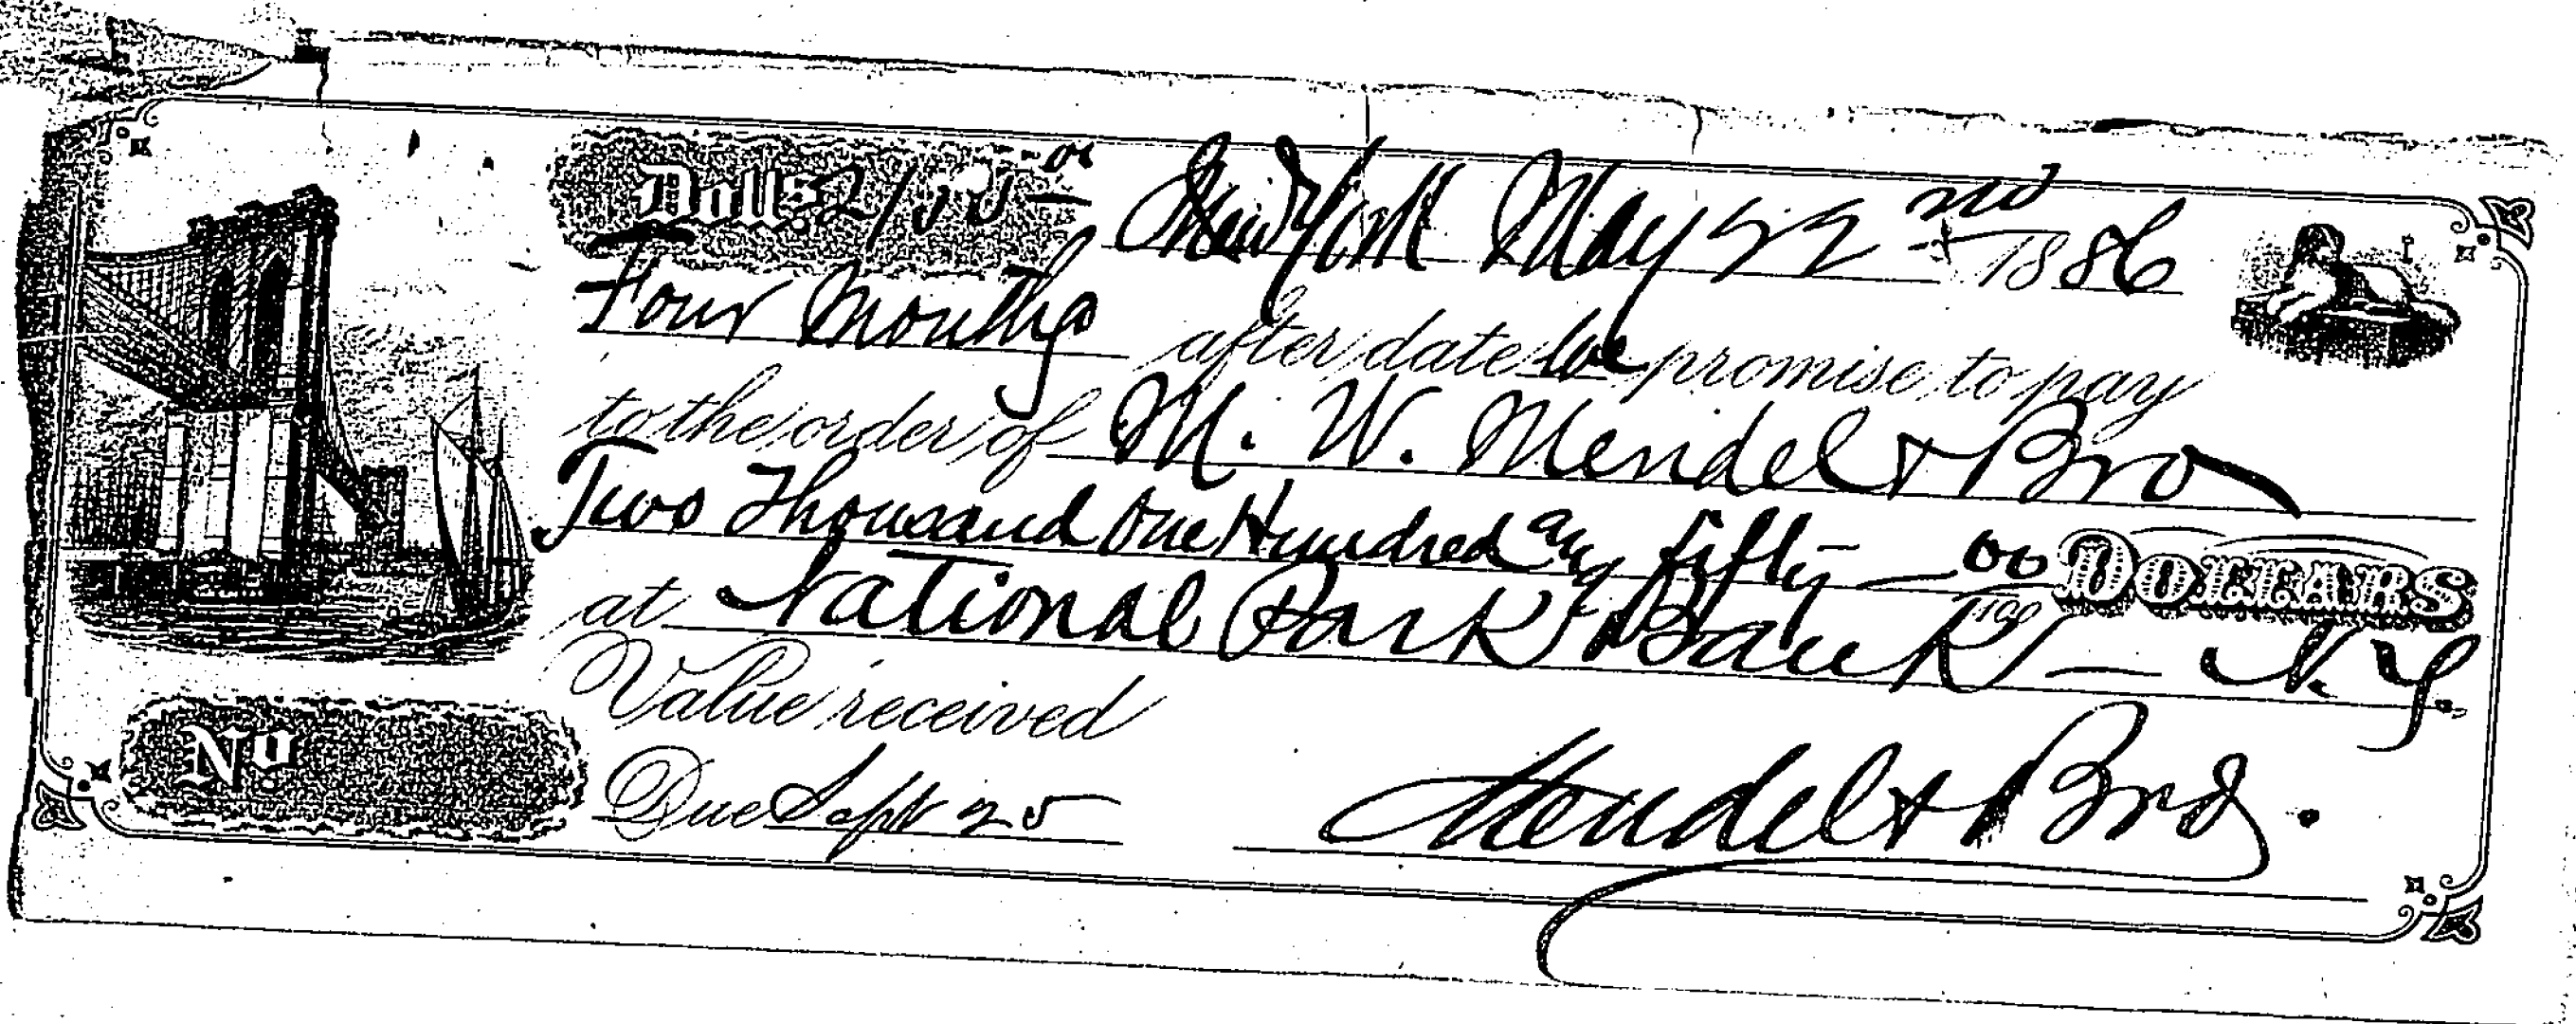 Dolls. 2150 00 New York May 22nd 1886
Four Months after date we promise to pay
to the order of M. W. Mendel & Bro
Two Thousand One Hundred and fifty — 00/100 DOLLARS
at National Park Bank — N.Y.
Value received
No Due Sept 25 Mendel & Bro.